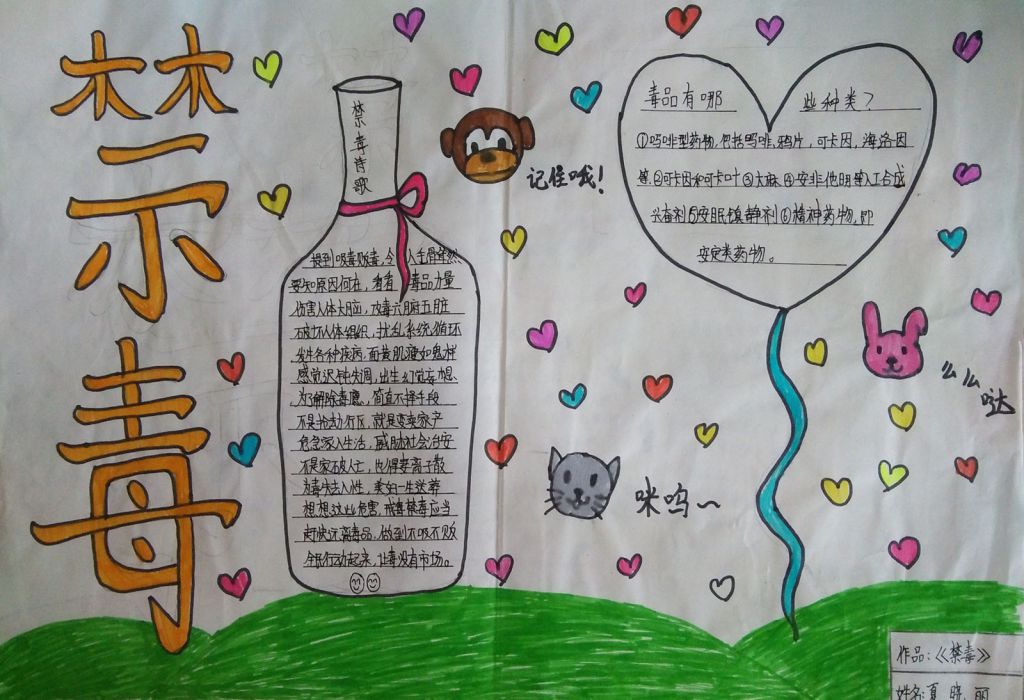 禁毒
禁毒诗歌
提到吸毒贩毒,令人毛骨耸然
要知原因何在,看看毒品力量
伤害人体大脑,攻毒六腑五脏
破坏人体组织,扰乱系统循环
发生各种疾病,面黄肌瘦如鬼样
感觉迟钝失调,出生幻觉妄想
为了解除毒瘾,简直不择手段
不是抢劫行凶,就是变卖家产
危急家人生活,威胁社会治安
不是家破人亡,也得妻离子散
为毒失去人性,美好一生送葬
想想这些危害,戒毒禁毒应当
赶快远离毒品,做到不吸不贩
全民行动起来,让毒没有市场。
记住哦!
毒品有哪些种类?
①吗啡型药物,包括吗啡、鸦片,可卡因,海洛因
等②可卡因和可卡叶③大麻④安非他明等人工合成
兴奋剂⑤安眠镇静剂⑥精神药物,即
安定类药物。
么么
哒
咪呜~
作品:《禁毒》
姓名:夏晓丽